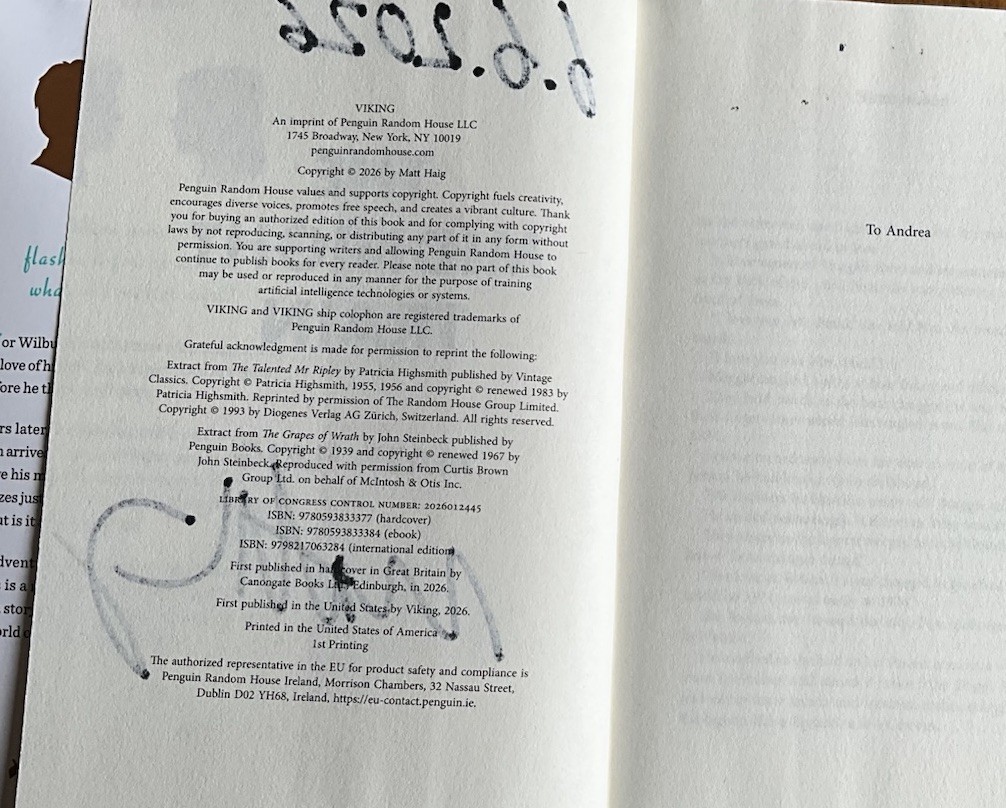 flash
wha
or Wilbu
love of h
rs later
arrive
his
just
is it
is a
6.6.2026
VIKING
An imprint of Penguin Random House LLC
1745 Broadway, New York, NY 10019
penguinrandomhouse.com
Copyright © 2026 by Matt Haig
Penguin Random House values and supports copyright. Copyright fuels creativity,
encourages diverse voices, promotes free speech, and creates a vibrant culture. Thank
you for buying an authorized edition of this book and for complying with copyright
laws by not reproducing, scanning, or distributing any part of it in any form without
permission. You are supporting writers and allowing Penguin Random House to
continue to publish books for every reader. Please note that no part of this book
may be used or reproduced in any manner for the purpose of training
artificial intelligence technologies or systems.
VIKING and VIKING ship colophon are registered trademarks of
Penguin Random House LLC.
Grateful acknowledgment is made for permission to reprint the following:
Extract from The Talented Mr Ripley by Patricia Highsmith published by Vintage
Classics. Copyright © Patricia Highsmith, 1955, 1956 and copyright © renewed 1983 by
Patricia Highsmith. Reprinted by permission of The Random House Group Limited.
Copyright © 1993 by Diogenes Verlag AG Zürich, Switzerland. All rights reserved.
Extract from The Grapes of Wrath by John Steinbeck published by
Penguin Books. Copyright © 1939 and copyright © renewed 1967 by
John Steinbeck. Reproduced with permission from Curtis Brown
Group Ltd. on behalf of McIntosh & Otis Inc.
LIBRARY OF CONGRESS CONTROL NUMBER: 2026012445
ISBN: 9780593833377 (hardcover)
ISBN: 9780593833384 (ebook)
ISBN: 9798217063284 (international edition)
First published in hardcover in Great Britain by
Canongate Books Ltd, Edinburgh, in 2026.
First published in the United States by Viking, 2026.
Printed in the United States of America
1st Printing
The authorized representative in the EU for product safety and compliance is
Penguin Random House Ireland, Morrison Chambers, 32 Nassau Street,
Dublin D02 YH68, Ireland, https://eu-contact.penguin.ie.
To Andrea